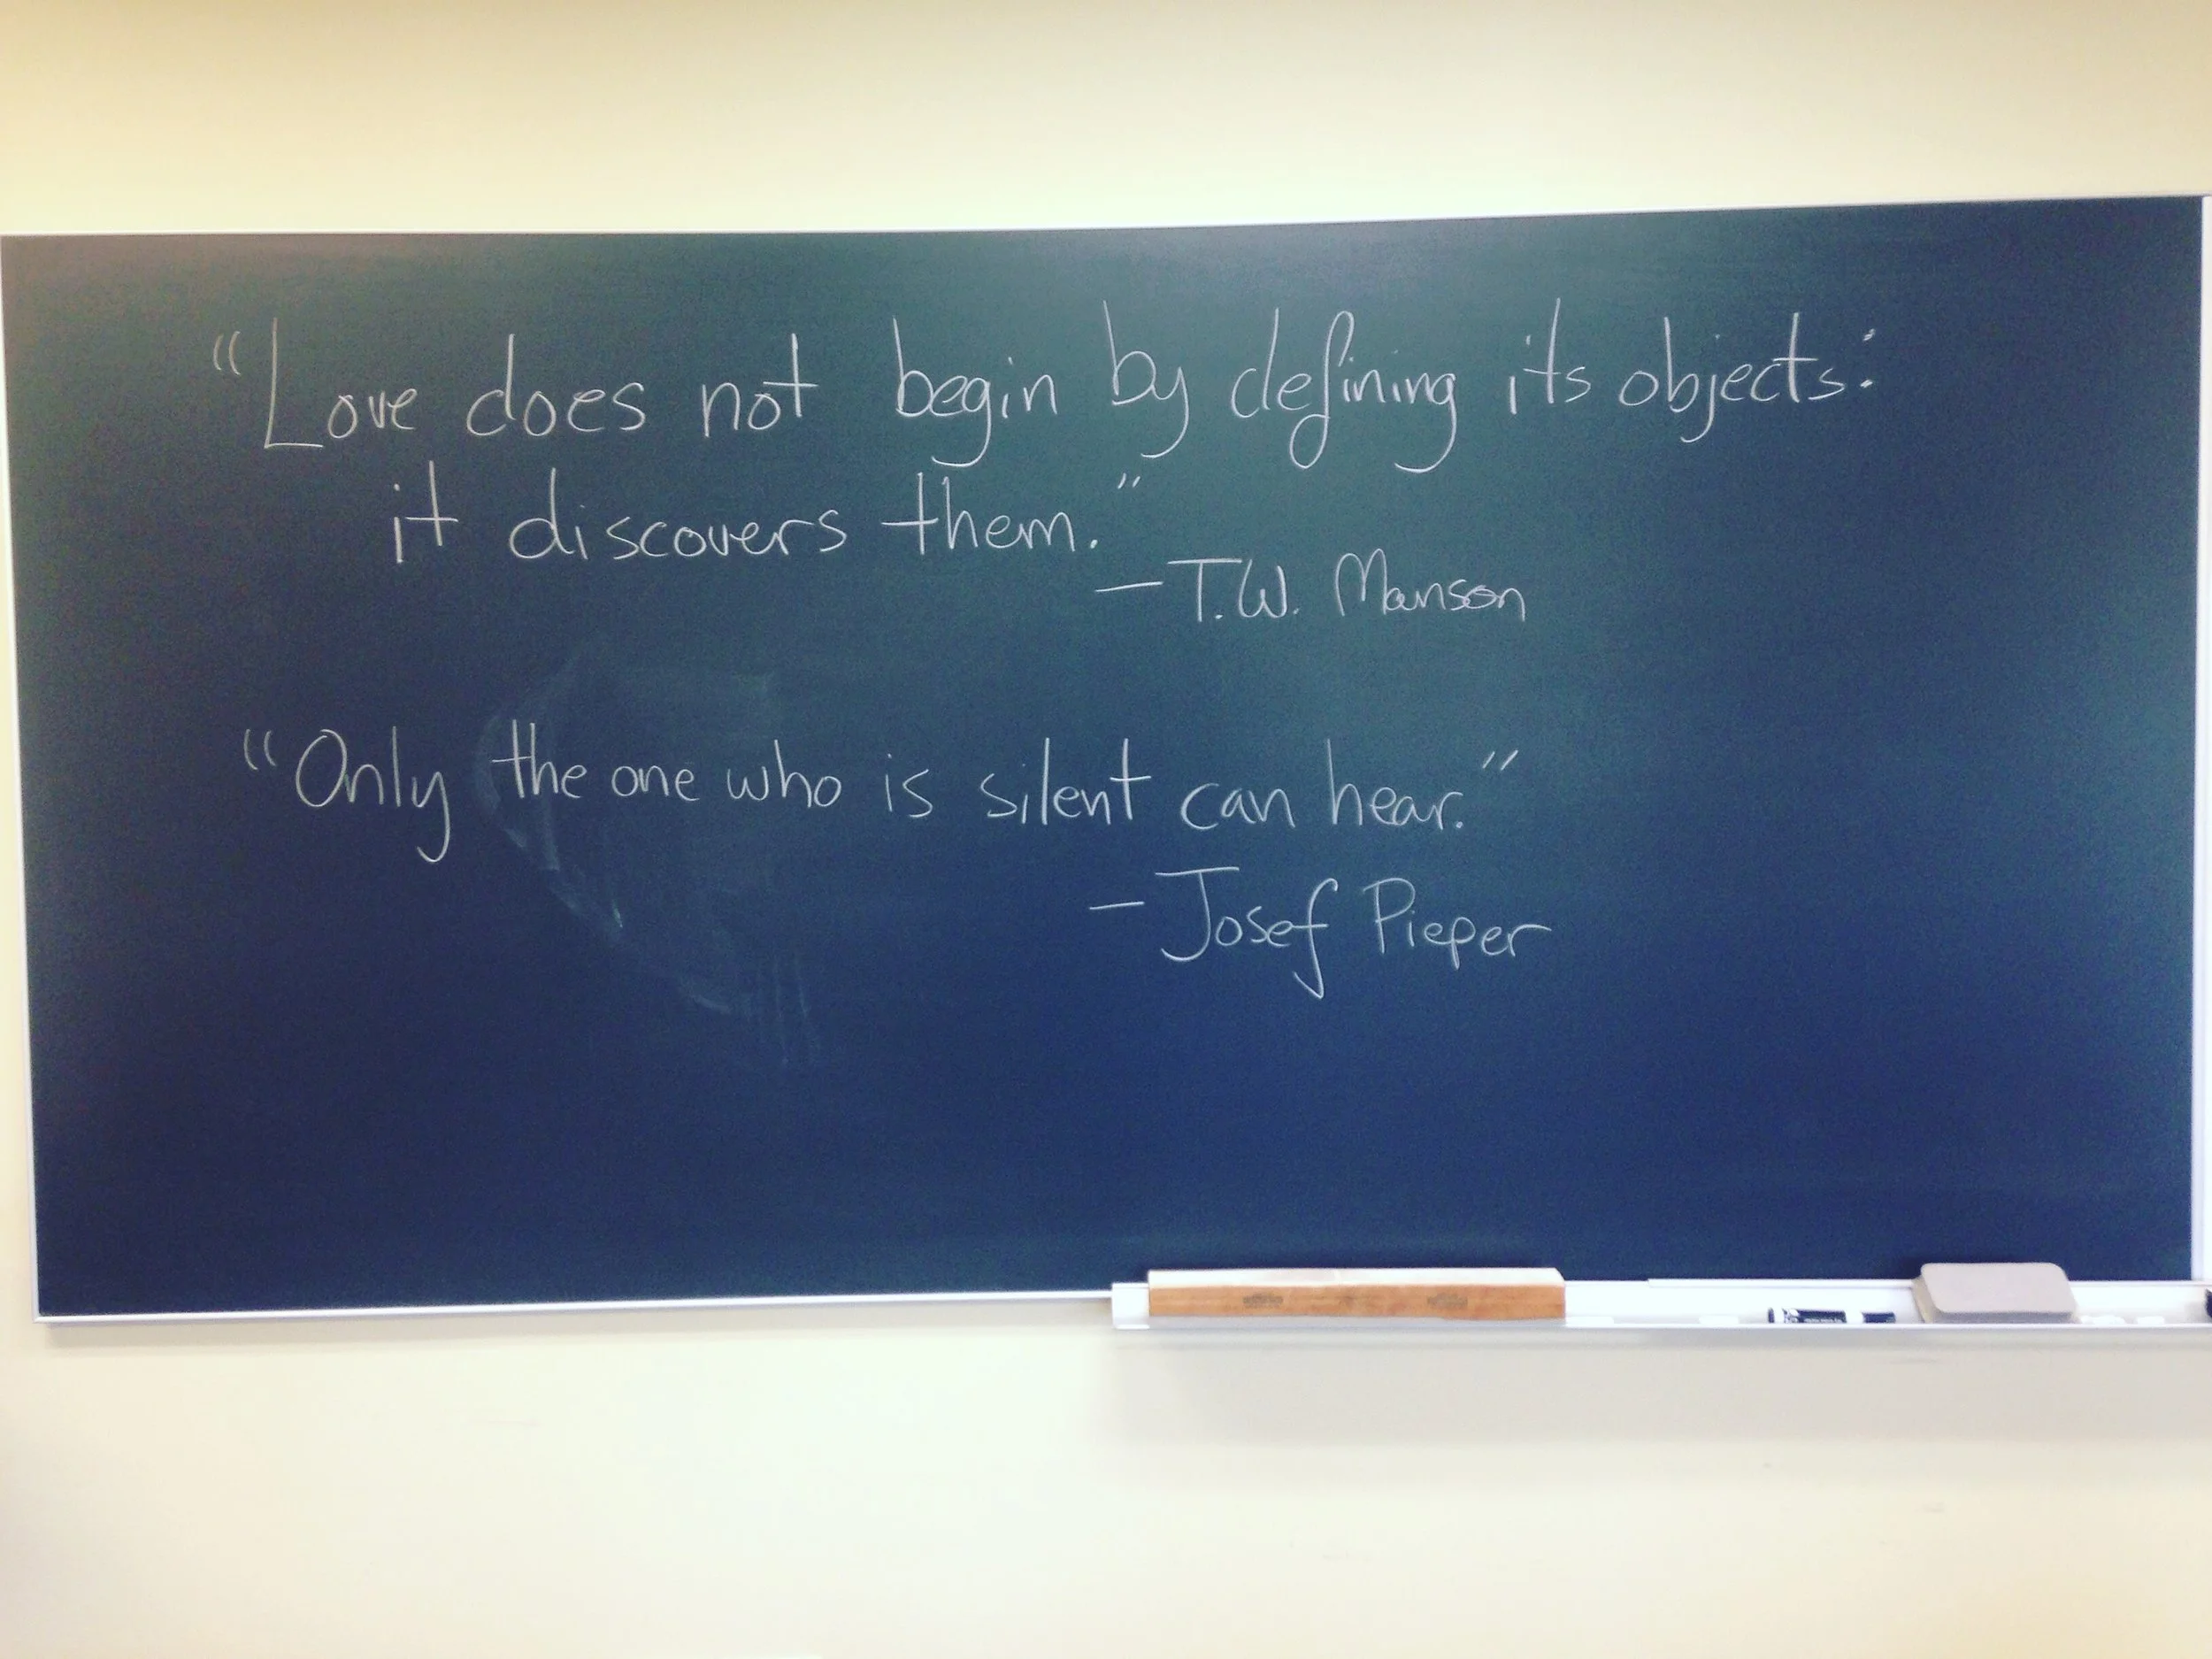 "Love does not begin by defining its objects:
it discovers them."
- T.W. Manson
"Only the one who is silent can hear."
- Josef Pieper